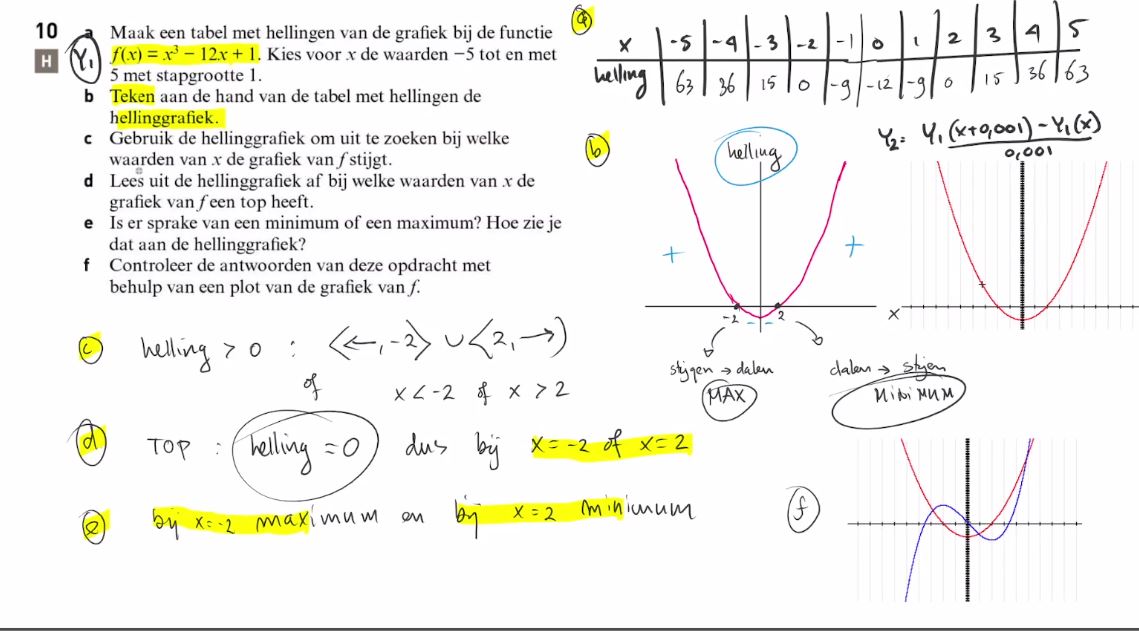 10
a Maak een tabel met hellingen van de grafiek bij de functie
H
Y₁
f(x) = x³ − 12x + 1. Kies voor x de waarden −5 tot en met
5 met stapgrootte 1.
b Teken aan de hand van de tabel met hellingen de
hellinggrafiek.
c Gebruik de hellinggrafiek om uit te zoeken bij welke
waarden van x de grafiek van f stijgt.
d Lees uit de hellinggrafiek af bij welke waarden van x de
grafiek van f een top heeft.
e Is er sprake van een minimum of een maximum? Hoe zie je
dat aan de hellinggrafiek?
f Controleer de antwoorden van deze opdracht met
behulp van een plot van de grafiek van f.
a
x -5 -4 -3 -2 -1 0 1 2 3 4 5
helling 63 36 15 0 -9 -12 -9 0 15 36 63
b
helling
Y₂ = Y₁(x+0,001) − Y₁(x)
0,001
+ +
-2 - - 2
x
stijgen → dalen
MAX
dalen → stijgen
MINIMUM
c helling > 0 : ⟨←, -2⟩ ∪ ⟨2, →⟩
of x < -2 of x > 2
d TOP : helling = 0 dus bij x = -2 of x = 2
e bij x = -2 maximum en bij x = 2 minimum
f